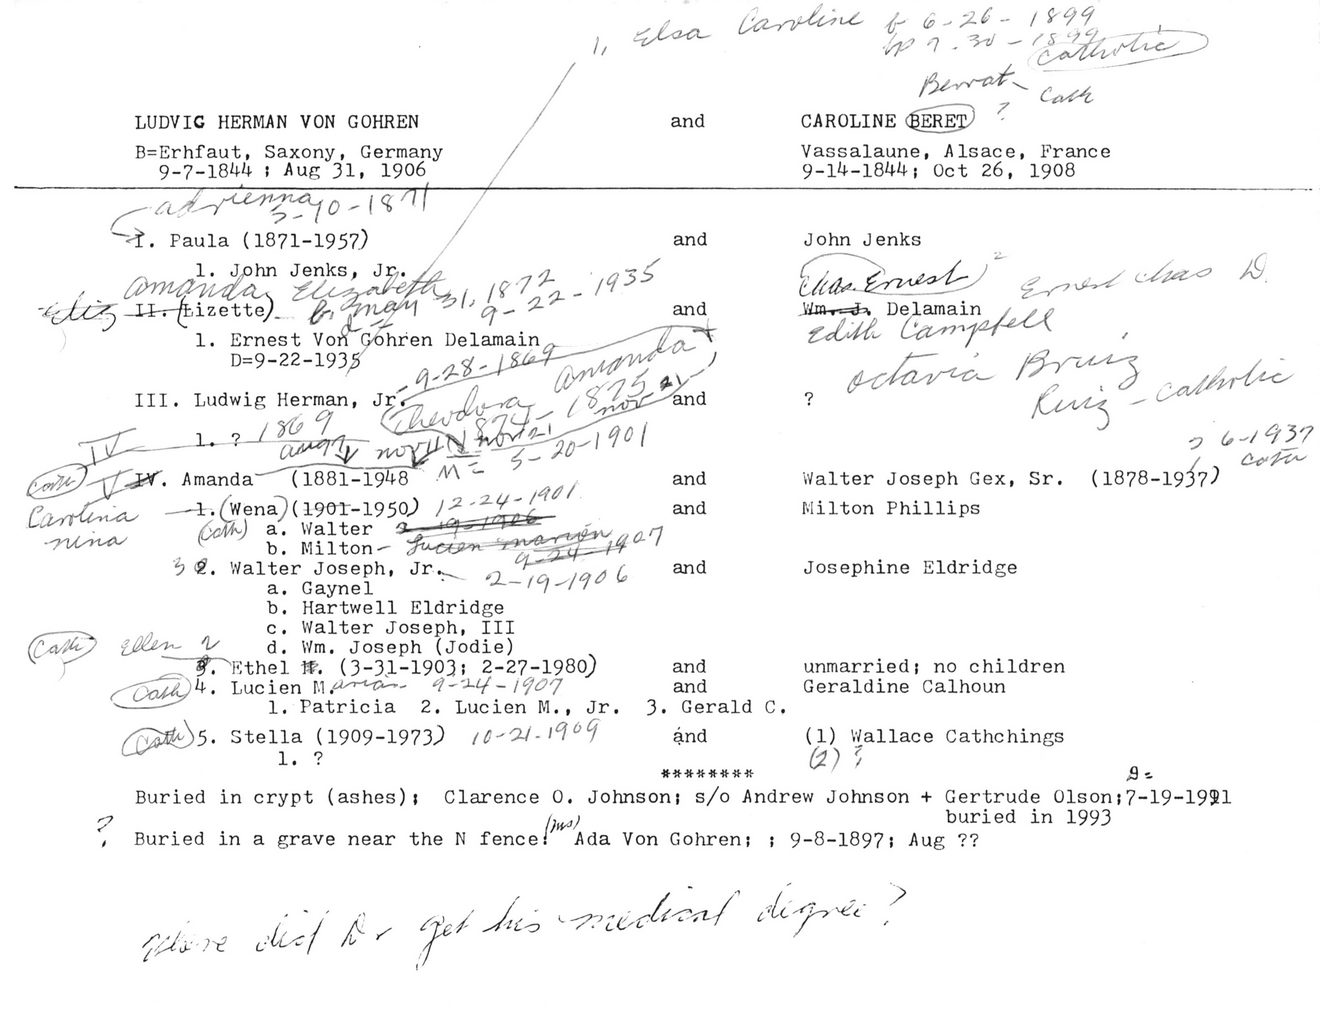 1, Elsa Caroline b 6-26-1899
bp 7-30-1899
Catholic
Berrat
? Cath
LUDVIG HERMAN VON GOHREN and CAROLINE BERET
B=Erhfaut, Saxony, Germany Vassalaune, Alsace, France
9-7-1844 ; Aug 31, 1906 9-14-1844; Oct 26, 1908
adrienna
3-10-1871
I. Paula (1871-1957) and John Jenks
1. John Jenks, Jr.
Amanda Elizabeth Chas. Ernest 2 Ernest Chas D.
Eliz II. (Lizette) b. May 31, 1872 and Wm. J. Delamain
d - 9-22-1935 Edith Campfell
1. Ernest Von Gohren Delamain
D=9-22-1935
9-28-1869 Amanda Octavia Bruiz
III. Ludwig Herman, Jr. Theodora and ? Ruiz - Catholic
1. ? 1869 1874 - 1875
IV Aug Nov 21 Nov 21
M = 5-20-1901 6-1937
Cath V IV. Amanda (1881-1948 and Walter Joseph Gex, Sr. (1878-1937) Cath
Carolina 1. (Wena) (1901-1950) 12-24-1901 and Milton Phillips
nina (Cath) a. Walter 2-19-1906
b. Milton - Lucien Marion 9-24-1907
3 2. Walter Joseph, Jr. 2-19-1906 and Josephine Eldridge
a. Gaynel
b. Hartwell Eldridge
c. Walter Joseph, III
d. Wm. Joseph (Jodie)
Cath Ellen 2
3. Ethel (3-31-1903; 2-27-1980) and unmarried; no children
Cath 4. Lucien M. arian 9-24-1907 and Geraldine Calhoun
1. Patricia 2. Lucien M., Jr. 3. Gerald C.
Cath 5. Stella (1909-1973) 10-21-1909 and (1) Wallace Cathchings
1. ? (2) ?
********
Buried in crypt (ashes); Clarence O. Johnson; s/o Andrew Johnson + Gertrude Olson; 7-19-1991
buried in 1993
? Buried in a grave near the N fence: (ms) Ada Von Gohren; ; 9-8-1897; Aug ??
Where did Dr get his medical degree?